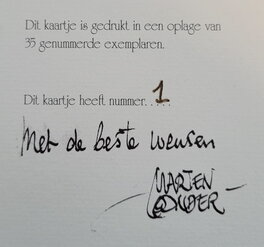 Dit kaartje is gedrukt in een oplage van
35 genummerde exemplaren.
Dit kaartje heeft nummer....1
Met de beste wensen
MARTEN
TOONDER